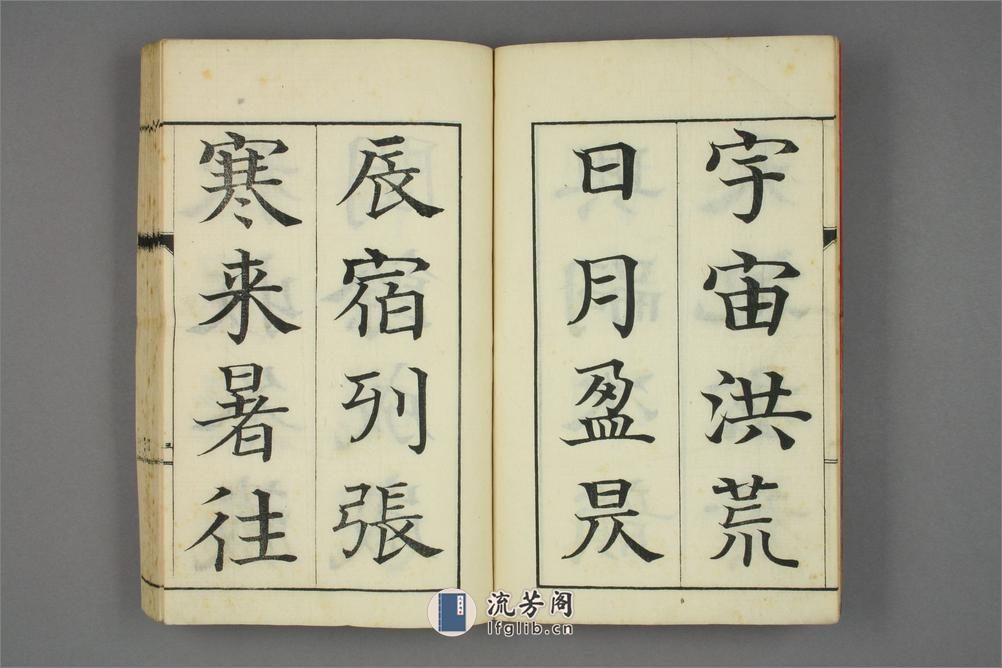 宇宙洪荒
日月盈昃
辰宿列張
寒来暑往
流芳阁
lfglib.cn